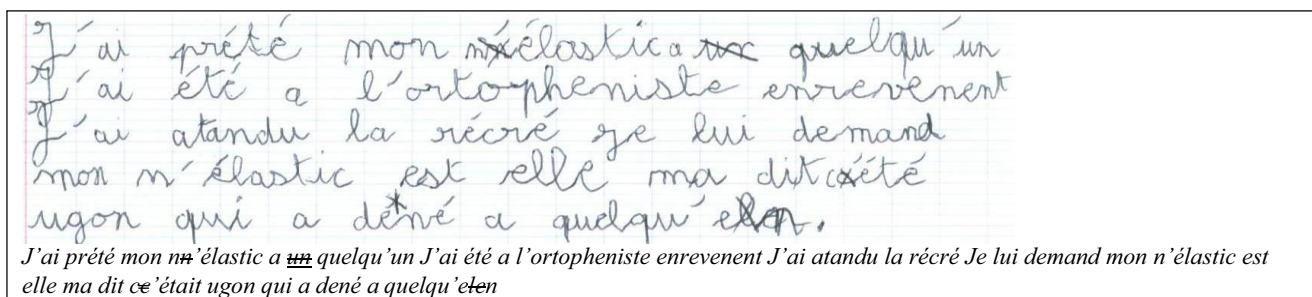 J'ai prété mon n'élastic a quelqu'un
J'ai été a l'ortopheniste enrevenent
J'ai atandu la récré Je lui demand
mon n'élastic est elle ma dit c'été
ugon qui a déné a quelqu'en.
J'ai prété mon nn'élastic a un quelqu'un J'ai été a l'ortopheniste enrevenent J'ai atandu la récré Je lui demand mon n'élastic est
elle ma dit ce'était ugon qui a dené a quelqu'elen